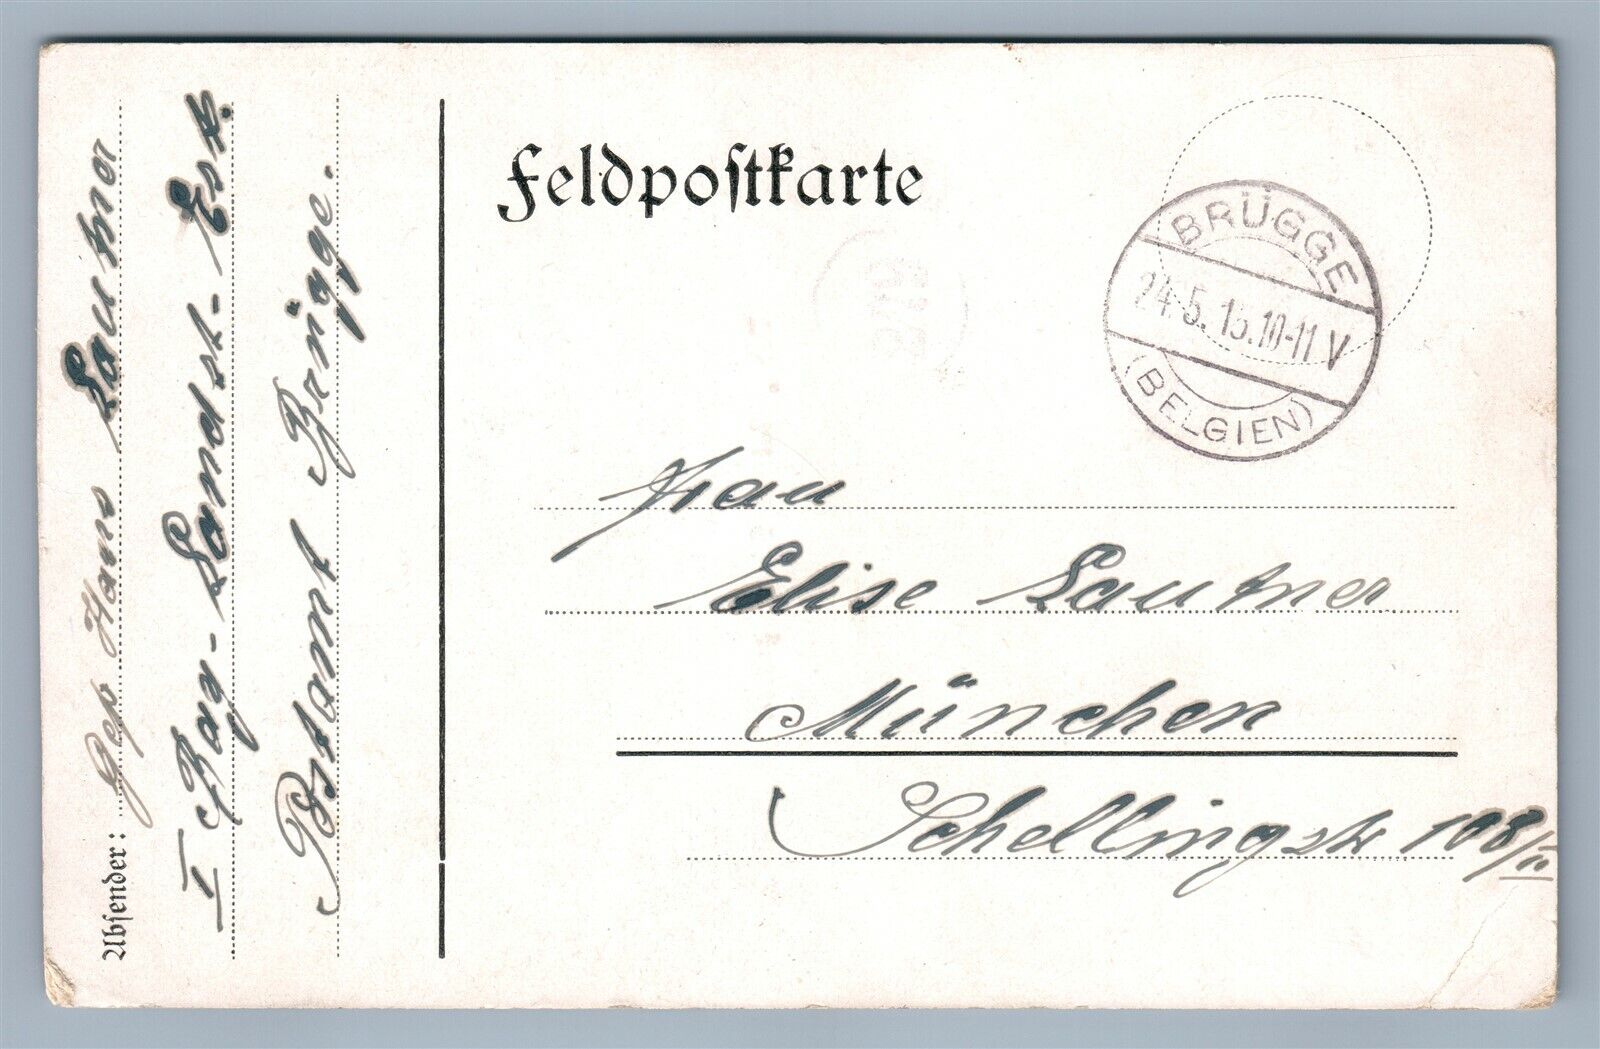 Feldpostkarte
BRÜGGE
24.5.15.10-11 V
(BELGIEN)
Frau
Elise Lautner
München
Schellingstr 108/II
Absender: Hans Lautner
I Bay-Landst-Esk.
Postamt Brügge.